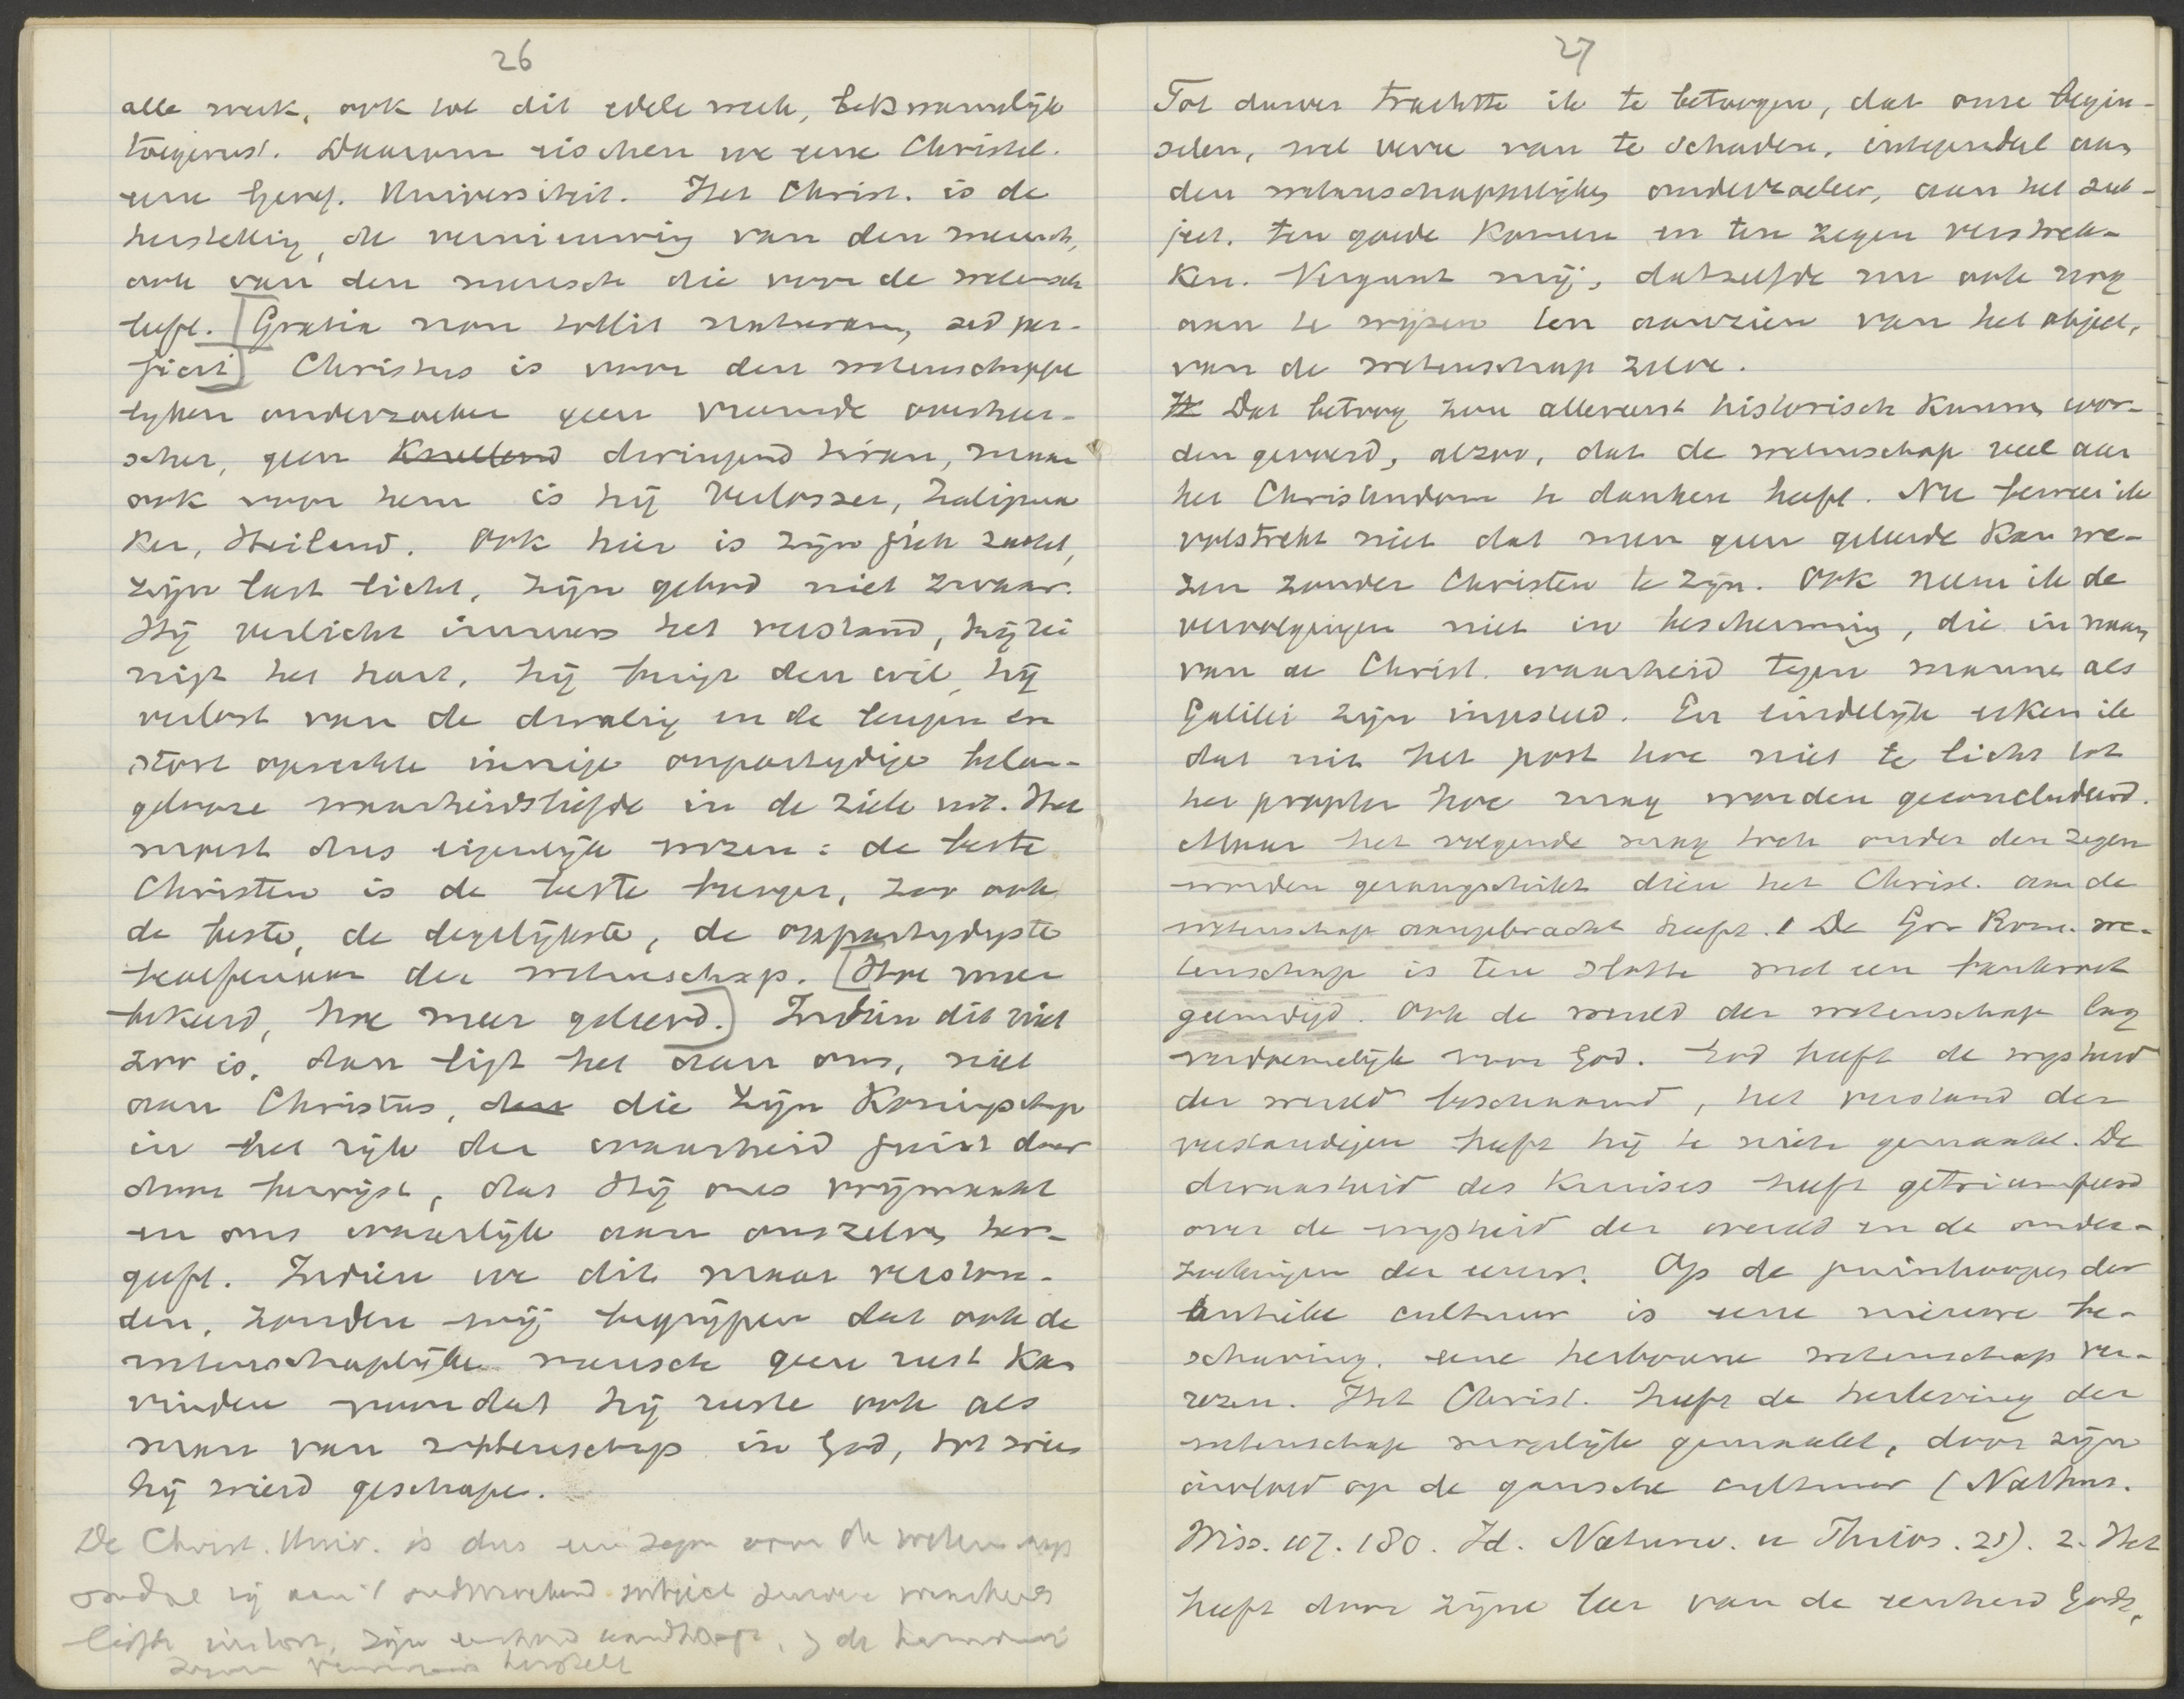 26
alle werk, ook tot dit edele werk, bekwamelijk
toegerust. Daarom eischen we eene Christel.
eene Geref. Universiteit. Het Christ. is de
herstelling, de vernieuwing van den mensch,
ook van den mensch die voor de wetensch
leeft. [Gratia non tollit naturam, sed per-
ficit] Christus is voor den wetenschappe
lyken onderzoeker geen vreemde overheer-
scher, geen knellend dwingend tiran, maar
ook voor hem is hij Verlosser, Zaligma
ker, Heiland. Ook hier is zijn juk zacht,
zijn last licht, zijn gebod niet zwaar.
Hij verlicht immers het verstand, hij rei
nigt het hart, hij buigt den wil, hij
verlost van de dwaling en de leugen en
stort oprechte innige onpartydige belan-
gelooze waarheidsliefde in de ziele uit. Het
moest dus eigenlijk wezen: de beste
Christen is de beste burger, zoo ook
de beste, de degelijkste, de onpartydigste
beoefenaar der wetenschap. [Hoe meer
bekeerd, hoe meer geleerd.] Indien dit niet
zoo is, dan ligt het aan ons, niet
aan Christus, die zijn Koningschap
in het rijk der waarheid juist daar
door bewijst, dat Hij ons vrijmaakt
en ons waarlijk aan onszelven her-
geeft. Indien we dit maar verston-
den, zouden wij begrijpen dat ook de
wetenschaplijke mensch geen rust kan
vinden voordat hij ruste ook als
man van wetenschap in God, tot wien
hij wierd geschapen.
De Christ. Univ. is dus een zegen voor de wetenschap
omdat zij aan 't onderzoekend subject zuivere waarheids
liefde instort, zijn eenheid handhaaft, de harmonie
zijner vermogens herstelt
27
Tot dusver trachtte ik te betoogen, dat onze begin-
selen, wel verre van te schaden, integendeel aan
den wetenschappelijken onderzoeker, aan het sub-
ject. ten goede komen en ten zegen verstrek-
ken. Vergunt mij, datzelfde nu ook nog
aan te wijzen ten aanzien van het object,
van de wetenschap zelve.
Dat betoog zou allereerst historisch kunnen wor-
den gevoerd, alzoo, dat de wetenschap veel aan
het Christendom te danken heeft. Nu beweer ik
volstrekt niet dat men geen geleerde kan we-
zen zonder Christen te zijn. Ook neem ik de
vervolgingen niet in bescherming, die in naam
van de Christ. waarheid tegen mannen als
Galilei zijn ingesteld. En eindelijk erken ik
dat uit het post hoc niet te licht tot
het propter hoc mag worden geconcludeerd.
Maar het volgende mag toch onder den zegen
worden gerangschikt dien het Christ. aan de
wetenschap aangebracht heeft. 1 De Gr. Rom. we-
tenschap is ten slotte met een bankroet
geeindigd. Ook de wereld der wetenschap lag
verdoemelijk voor God. God heeft de wysheid
der wereld beschaamd, het verstand der
verstandigen heeft hij te niete gemaakt. De
dwaasheid des Kruises heeft getriumfeerd
over de wysheid der wereld en de onder-
zoekingen der eeuw. Op de puinhoopen der
antieke cultuur is eene nieuwe be-
schaving, eene herboren wetenschap ver-
rezen. Het Christ. heeft de herleving der
wetenschap mogelijk gemaakt, door zijn
invloed op de gansche cultuur (Nathus.
Wiss. 180. Id. Naturw. u 25). 2. Het
heeft door zijne leer van de eenheid Gods,